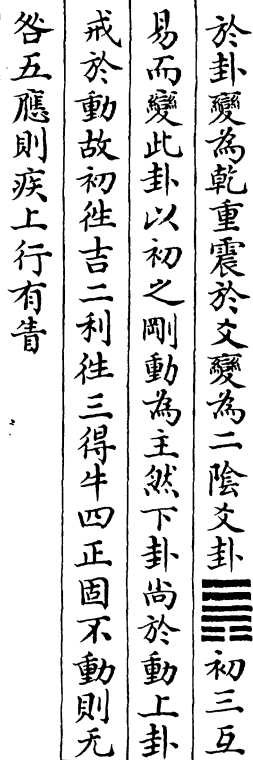 於卦變為乾重震於爻變為二陰爻卦䷠初三互
易而變此卦以初之剛動為主然下卦尚於動上卦
戒於動故初徃吉二利徃三得牛四正固不動則无
咎五應則疾上行有眚